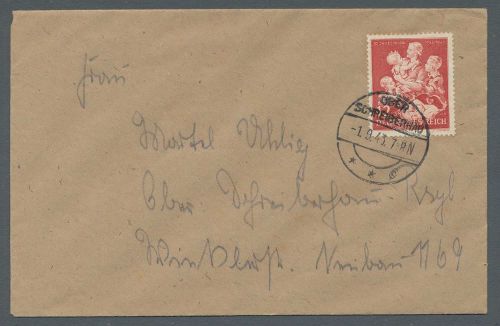 OBER
SCHREIBERHAU
-1.9.43.7-8N
REICH
Frau
Martel Uhlig
Ober Schreiberhau Rsgb.
Winklerstr. Neubau 1169